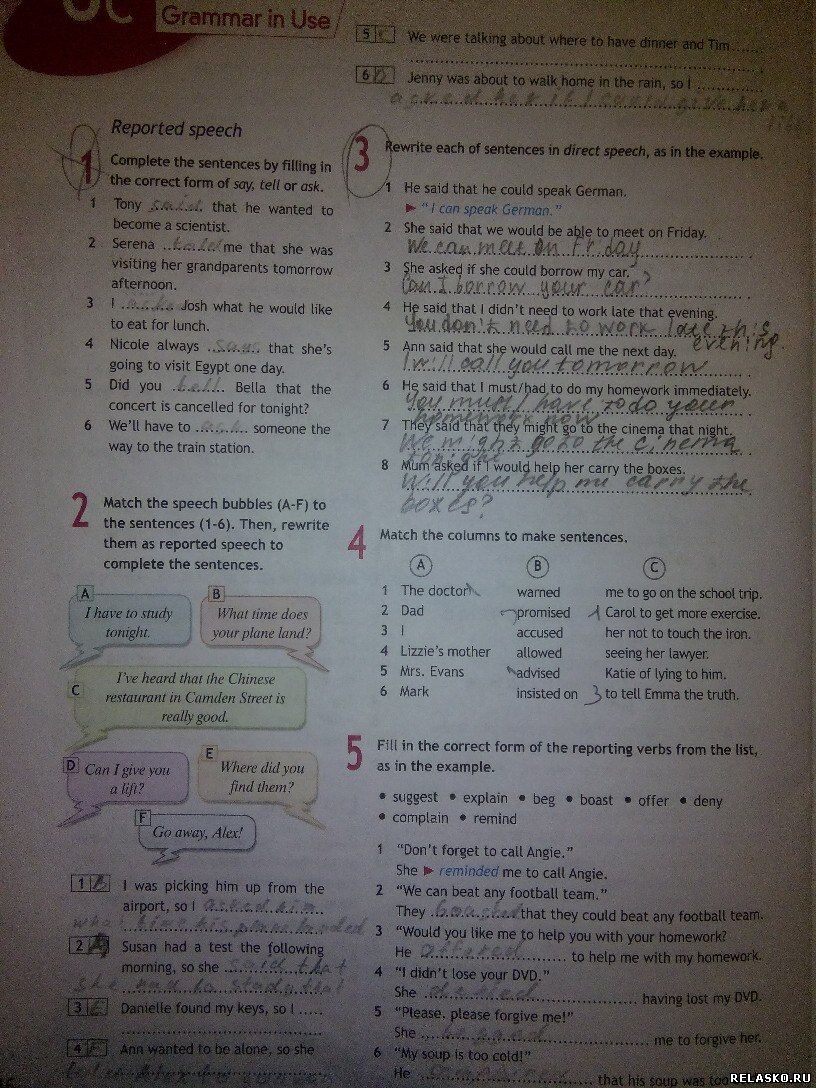 6c Grammar in Use
Reported speech
1 Complete the sentences by filling in
the correct form of say, tell or ask.
1 Tony said that he wanted to
become a scientist.
2 Serena told me that she was
visiting her grandparents tomorrow
afternoon.
3 I Josh what he would like
to eat for lunch.
4 Nicole always says that she's
going to visit Egypt one day.
5 Did you tell Bella that the
concert is cancelled for tonight?
6 We'll have to ask someone the
way to the train station.
2 Match the speech bubbles (A-F) to
the sentences (1-6). Then, rewrite
them as reported speech to
complete the sentences.
A
I have to study
tonight.
B
What time does
your plane land?
C
I've heard that the Chinese
restaurant in Camden Street is
really good.
D
Can I give you
a lift?
E
Where did you
find them?
F
Go away, Alex!
1 B I was picking him up from the
airport, so I asked him
what time his plane landed
2 A Susan had a test the following
morning, so she said that
she had to study that
3 E Danielle found my keys, so I ......
4 F Ann wanted to be alone, so she
5 C We were talking about where to have dinner and Tim ......
6 D Jenny was about to walk home in the rain, so I ......
asked her if I could give her a
lift
3 Rewrite each of sentences in direct speech, as in the example.
1 He said that he could speak German.
▶ "I can speak German."
2 She said that we would be able to meet on Friday.
We can meet on Friday
3 She asked if she could borrow my car.
Can I borrow your car?
4 He said that I didn't need to work late that evening.
You don't need to work late this
evening.
5 Ann said that she would call me the next day.
I will call you tomorrow
6 He said that I must/had to do my homework immediately.
You must/have to do your
homework now
7 They said that they might go to the cinema that night.
We might go to the cinema
tonight
8 Mum asked if I would help her carry the boxes.
Will you help me carry the
boxes?
4 Match the columns to make sentences.
A B C
1 The doctor warned me to go on the school trip.
2 Dad promised Carol to get more exercise.
3 I accused her not to touch the iron.
4 Lizzie's mother allowed seeing her lawyer.
5 Mrs. Evans advised Katie of lying to him.
6 Mark insisted on 3 to tell Emma the truth.
5 Fill in the correct form of the reporting verbs from the list,
as in the example.
• suggest • explain • beg • boast • offer • deny
• complain • remind
1 "Don't forget to call Angie."
She ▶ reminded me to call Angie.
2 "We can beat any football team."
They boasted that they could beat any football team.
3 "Would you like me to help you with your homework?
He offered to help me with my homework.
4 "I didn't lose your DVD."
She denied having lost my DVD.
5 "Please, please forgive me!"
She begged me to forgive her.
6 "My soup is too cold!"
He complained that his soup was too
RELASKO.RU